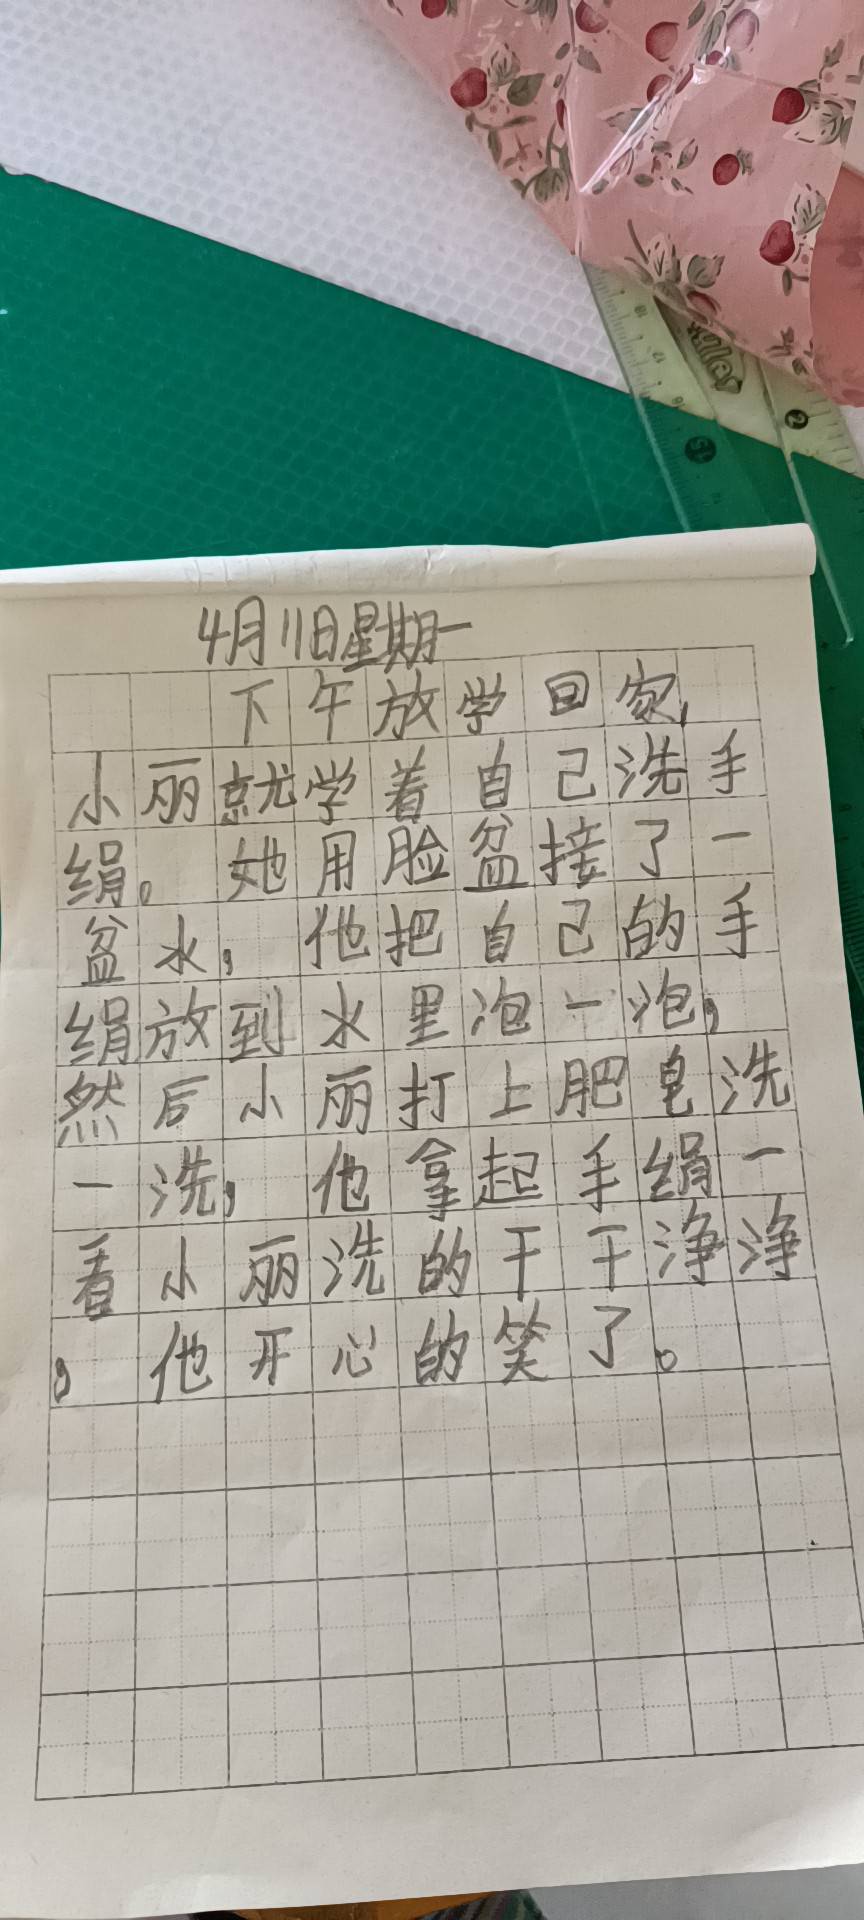 4月11日星期一
下午放学回家,
小丽就学着自己洗手
绢。她用脸盆接了一
盆水,他把自己的手
绢放到水里泡一泡,
然后小丽打上肥皂洗
一洗,他拿起手绢一
看小丽洗的干干净净
,他开心的笑了。